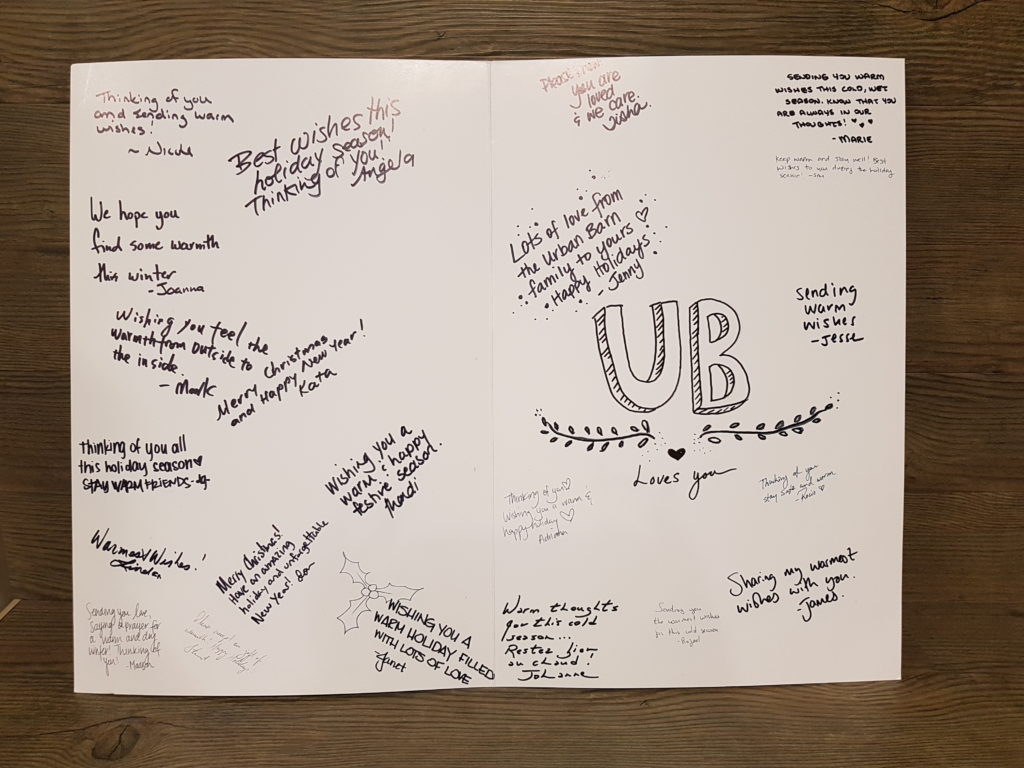 Thinking of you
and sending warm
wishes!
~ Nicole
BEST WISHES this
holiday SEASON!
Thinking of you!
Angela
We hope you
find some warmth
this winter
-Joanna
Wishing you feel the
warmth from outside to
the inside.
- Mark
Merry Christmas
and Happy New Year!
Kata
Thinking of you all
this holiday season♡
STAY WARM FRIENDS
Warmest Wishes!
Wishing you a
warm & happy
festive season.
Merry Christmas!
Have an amazing
holiday and unforgettable
New Year!
Sending you love,
Saying a prayer for
a warm and dry
winter! Thinking of
you!
WISHING YOU A
WARM HOLIDAY FILLED
WITH LOTS OF LOVE
-Janet
Please know
you are
loved
& we care.
SENDING YOU WARM
WISHES THIS COLD, WET
SEASON. KNOW THAT YOU
ARE ALWAYS IN OUR
THOUGHTS! ♥♥♥
- MARIE
Keep warm and stay well! Best
wishes to you during the holiday
season!
Lots of love from
the Urban Barn
family to yours ♡
Happy Holidays
- Jenny
UB
Loves you
Sending
warm
wishes
-Jesse
Thinking of you♡
Wishing you a warm &
happy holiday ♡
Thinking of you
stay safe and warm
Warm thoughts
for this cold
season...
Restez
au chaud!
Johanne
Sending you
the warmest wishes
for this cold season
Sharing my warmest
wishes with you.
-James.